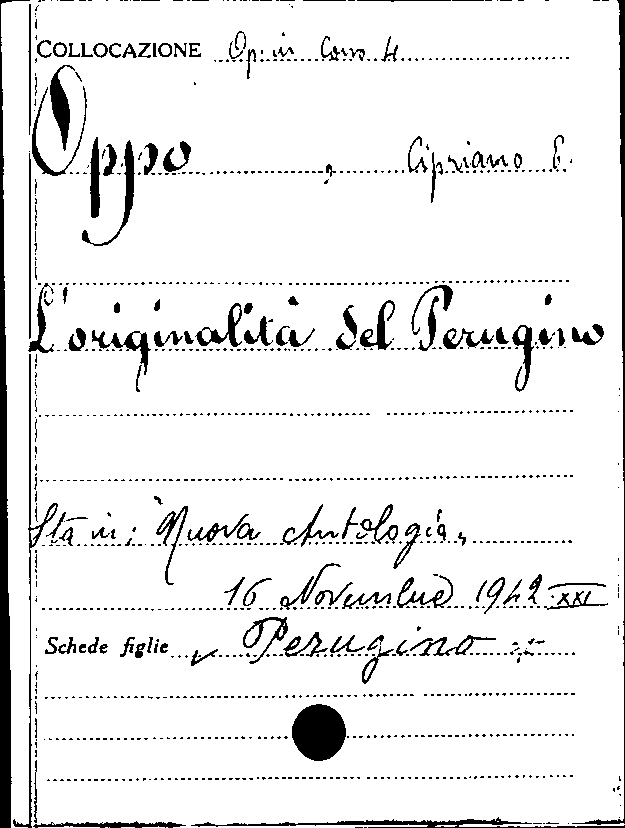 COLLOCAZIONE Op. in Cons 4
Oppo , Cipriano E.
L'originalità del Perugino
Sta in: "Nuova Antologia"
16 Novembre 1942.XXI
Schede figlie Perugino